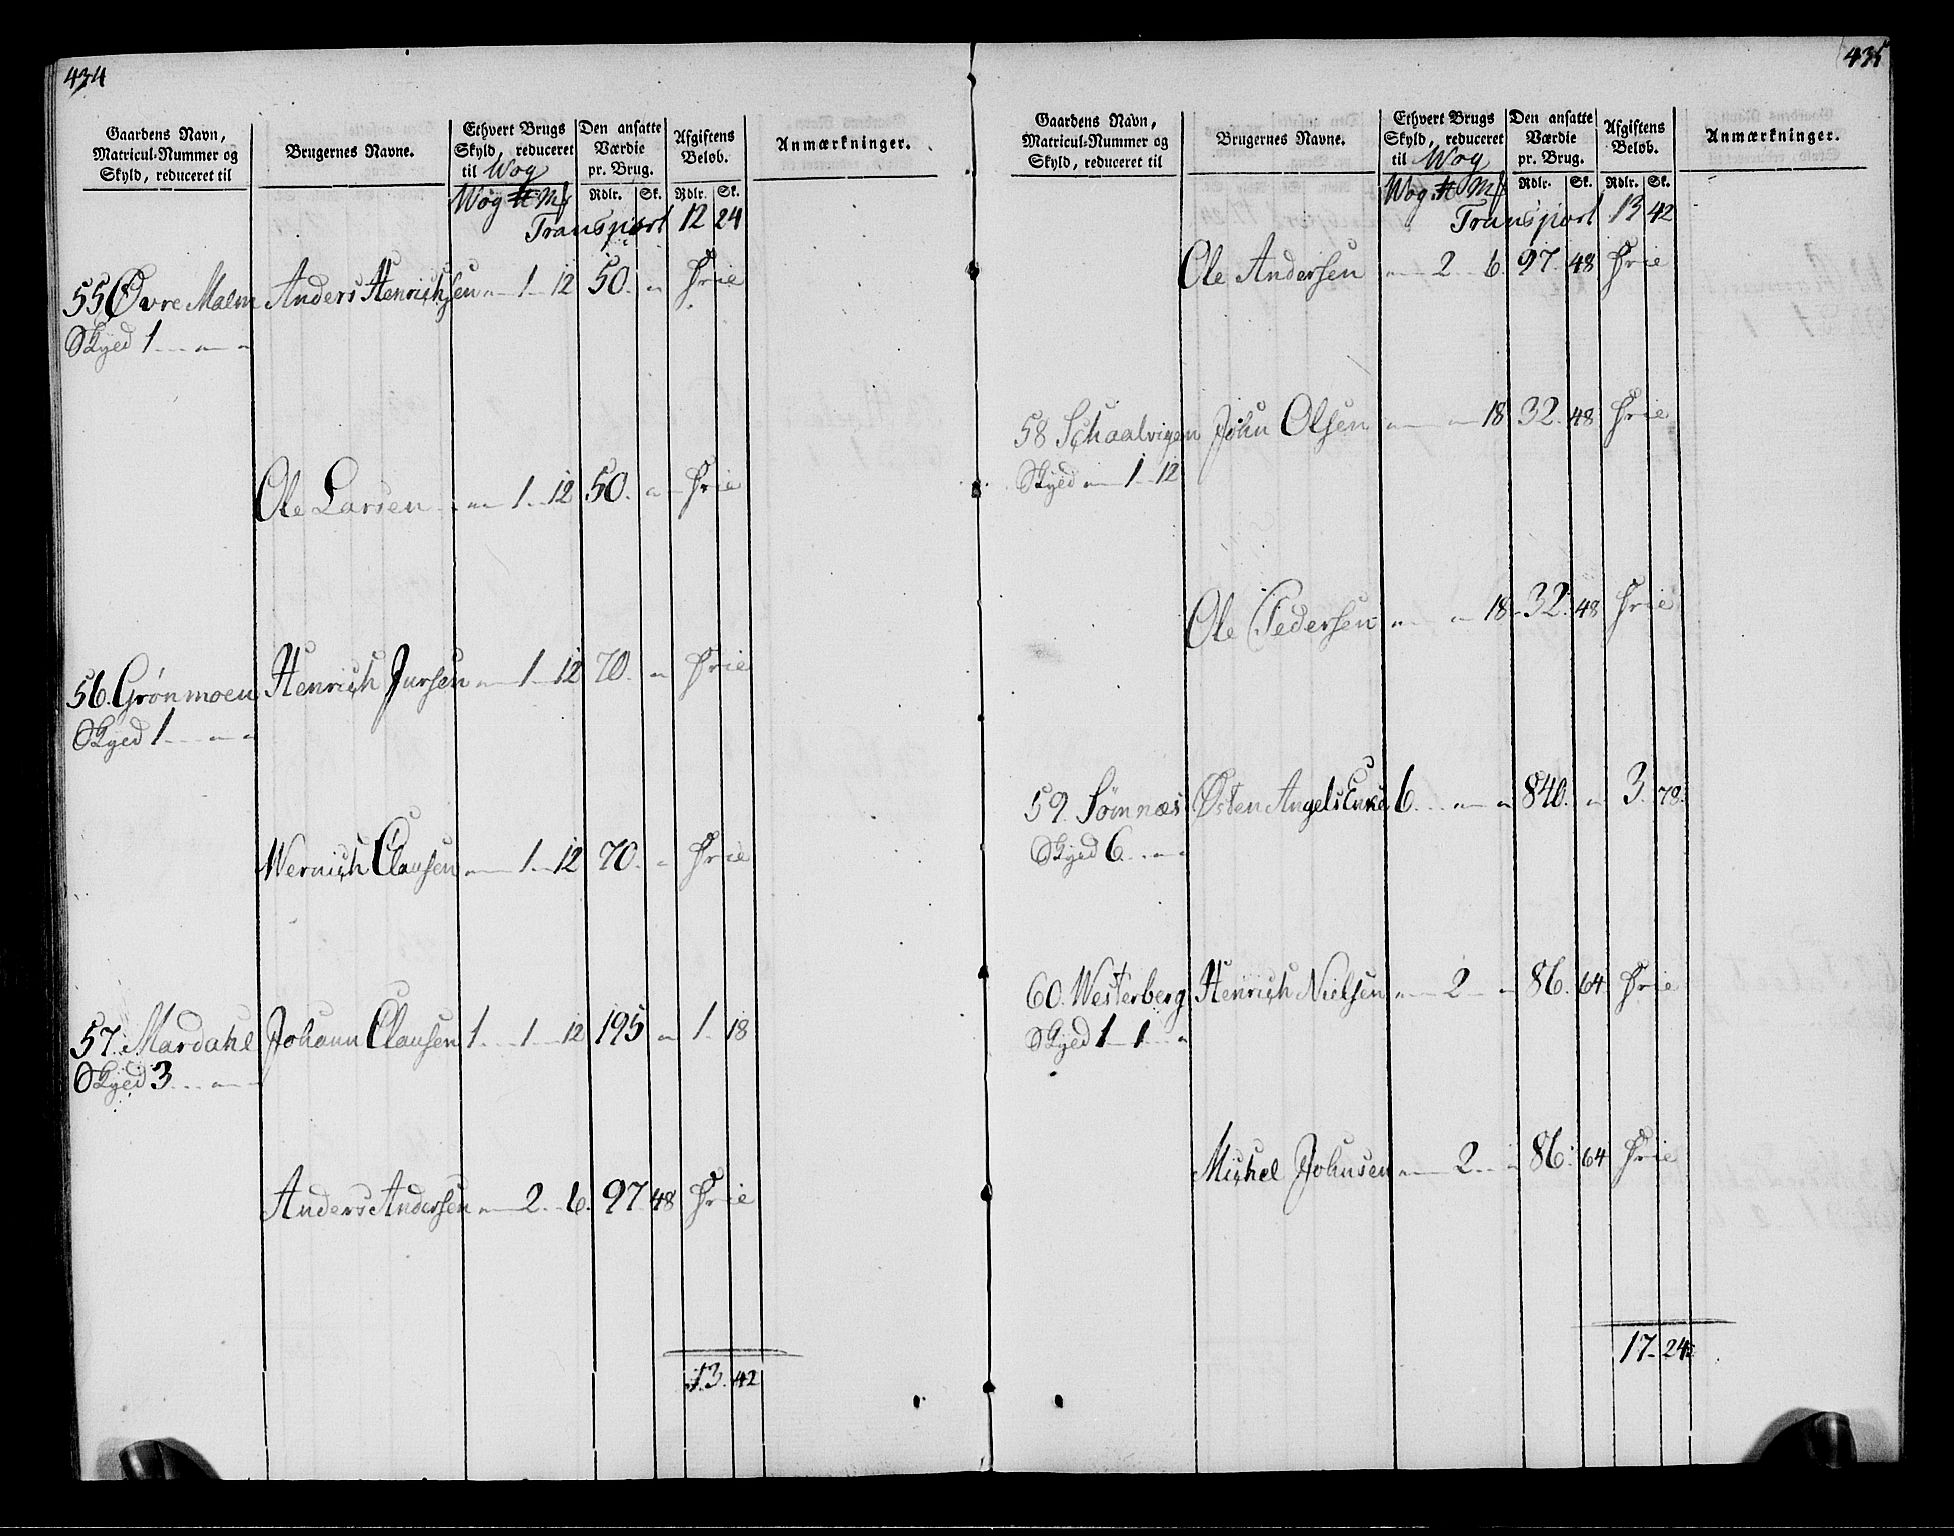 434
Gaardens Navn, Matricul-Nummer og Skyld, reduceret til | Brugernes Navne. | Ethvert Brugs Skyld, reduceret til Wog | Den ansatte Værdie pr. Brug. | Afgiftens Beløb. | Anmærkninger.
Wog ℔ Mk | Rdlr. | Sk. | Rdlr. | Sk.
Transport 12 24
55 Øvre Malm Anders Henrichsen „ 1 12 50. „ Frie
Skyld 1 „ „
Ole Larsen „ 1 12 50. „ Frie
56. Grönmoen Henrich Jursen „ 1 12 70. „ Frie
Skyld 1 „ „
Wernich Clausen „ 1 12 70. „ Frie
57. Mardahl Johann Clausen 1 1 12 195 „ 1 18
Skyld 3 „ „
Anders Andersen „ 2 6. 97 48 Frie
13. 42
435
Gaardens Navn, Matricul-Nummer og Skyld, reduceret til | Brugernes Navne. | Ethvert Brugs Skyld, reduceret til Wog | Den ansatte Værdie pr. Brug. | Afgiftens Beløb. | Anmærkninger.
Wog ℔ Mk | Rdlr. | Sk. | Rdlr. | Sk.
Transport 13 42
Ole Andersen „ 2 6 97. 48 Frie
58 Schaalvigen John Olsen „ „ 18 32. 48 Frie
Skyld „ 1 12
Ole Pedersen „ „ 18 32. 48 Frie
59. Sömnæs Østen Angels Enke 6 „ „ 840. „ 3. 78.
Skyld 6 „ „
60. Westerberg Henrich Nielsen „ 2 „ 86. 64 Frie
Skyld 1 1 „
Michel Johnsen „ 2 „ 86. 64 Frie
17. 24